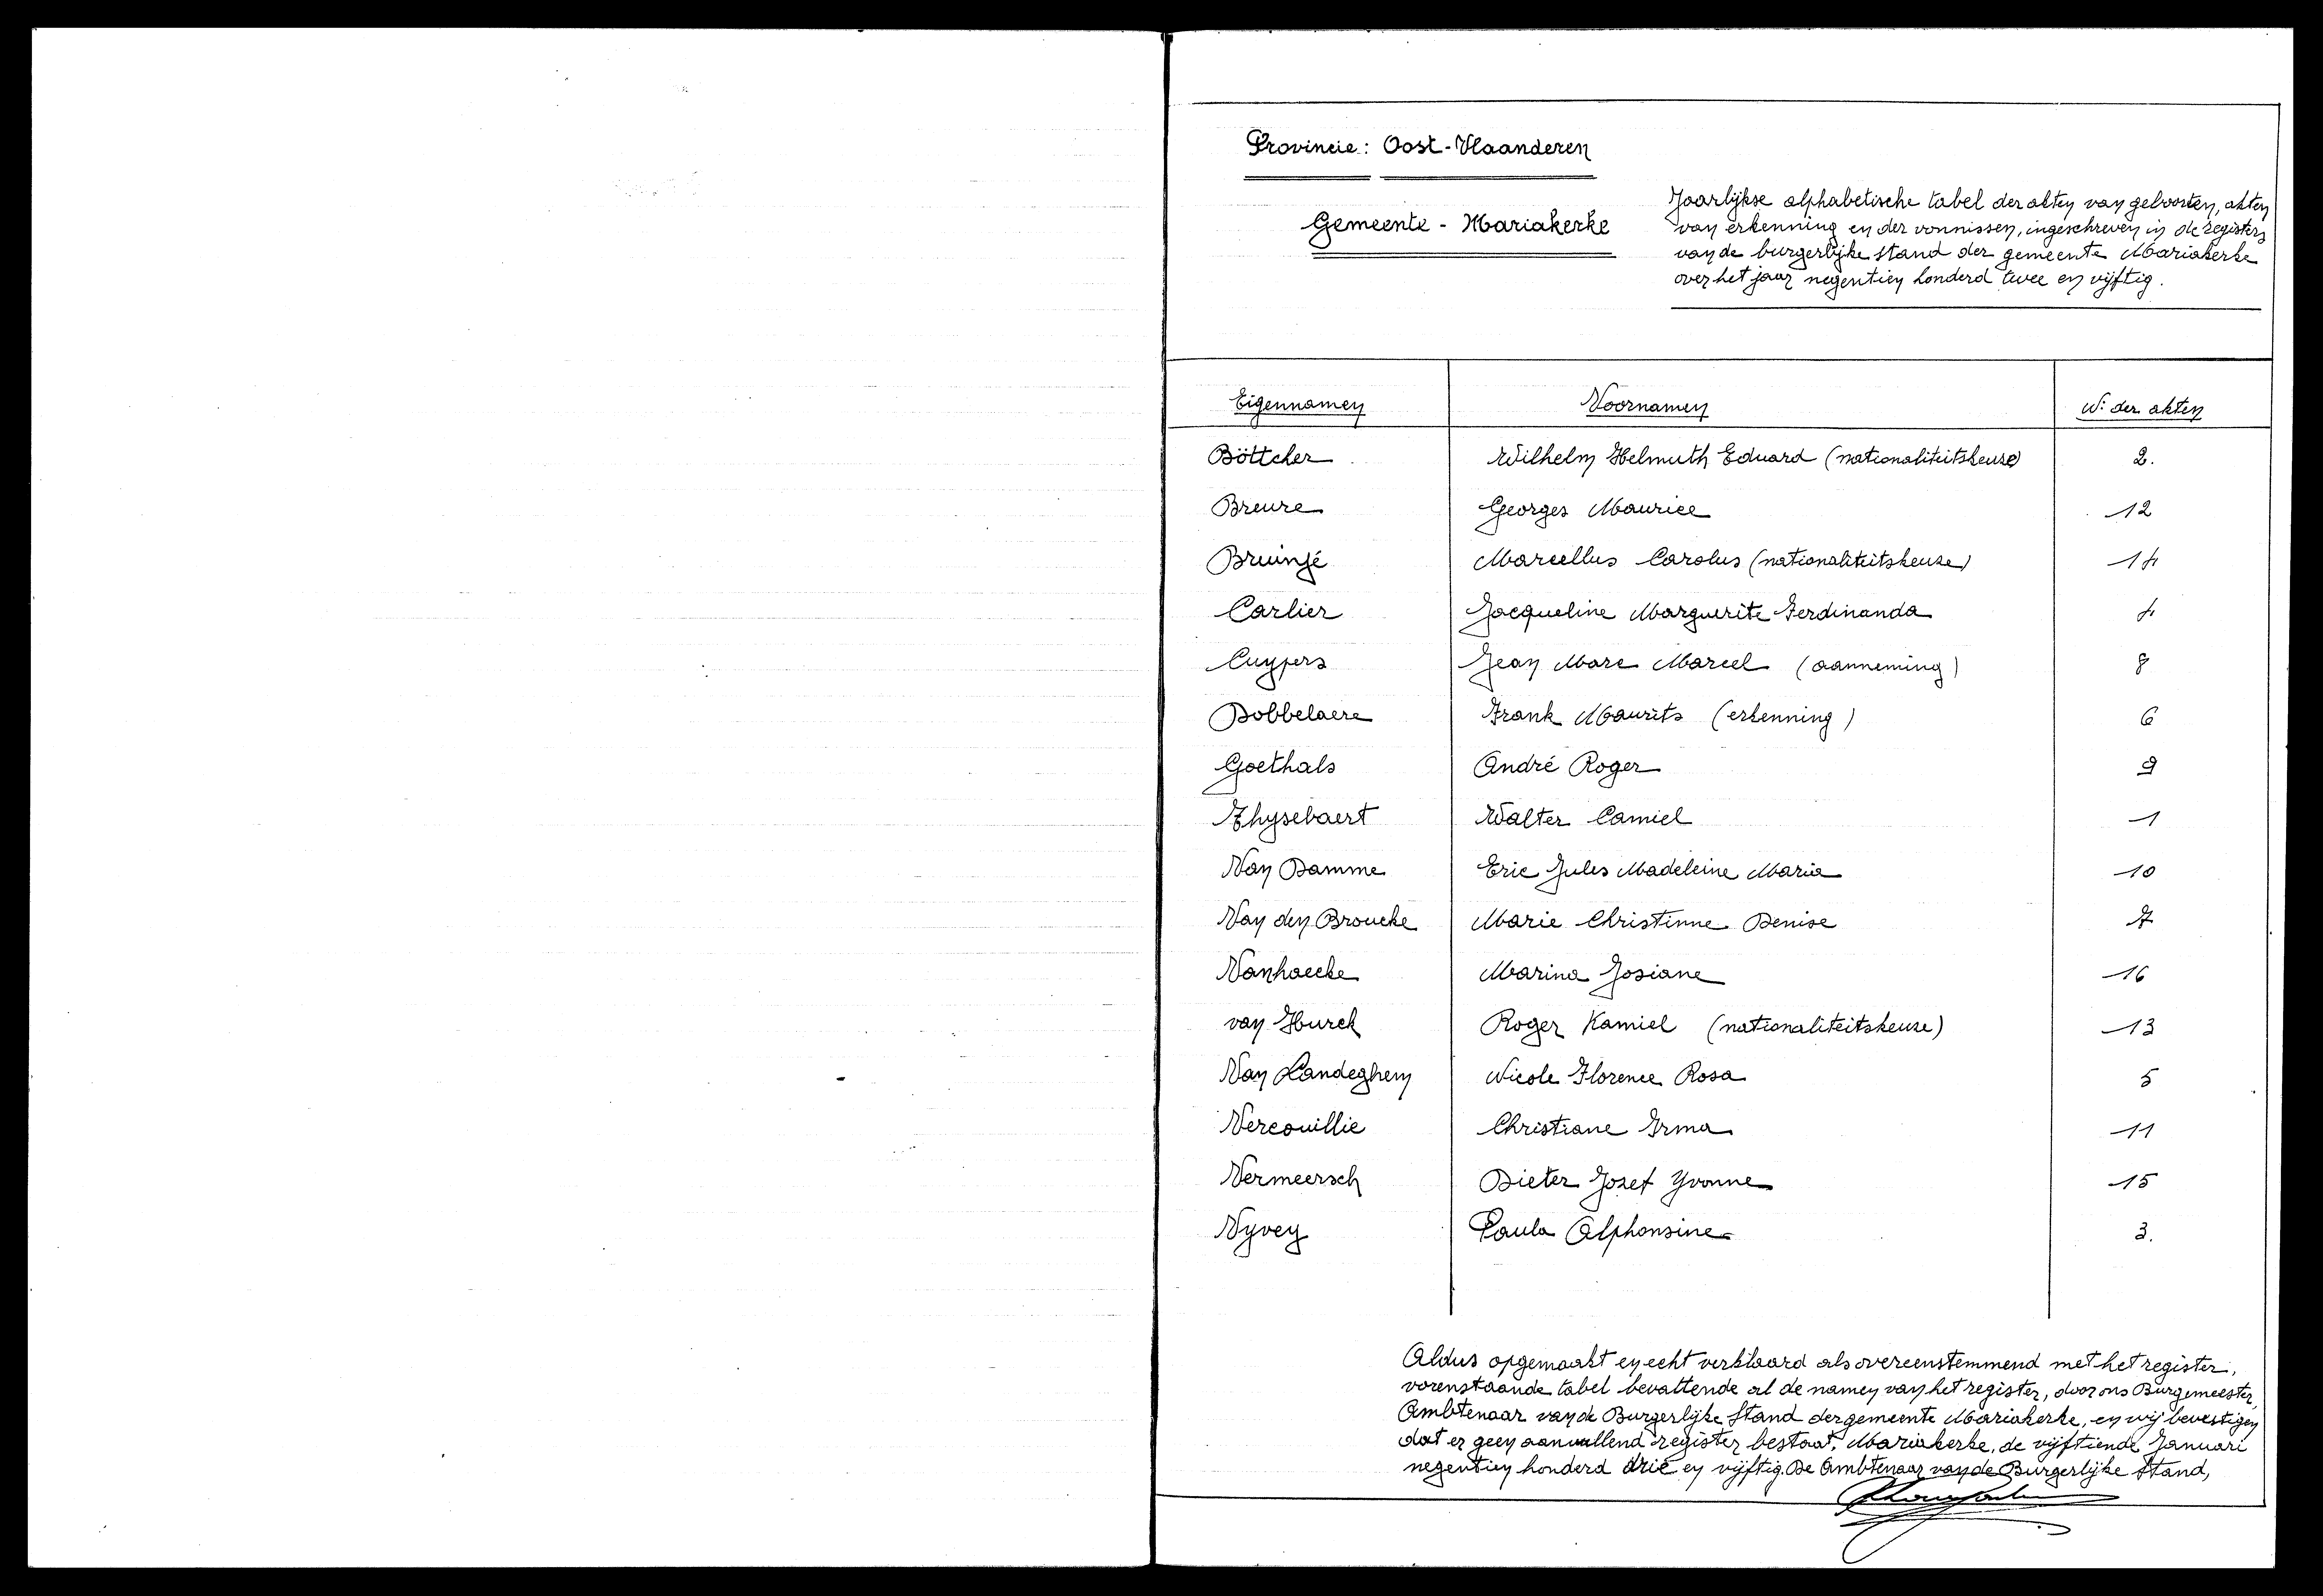 Provincie: Oost-Vlaanderen
Gemeente - Mariakerke
Jaarlijkse alphabetische tabel der akten van geboorten, akten
van erkenning en der vonnissen, ingeschreven in de registers
van de burgerlijke stand der gemeente Mariakerke
over het jaar negentien honderd twee en vijftig.
Eigennamen Voornamen N: der akten
Böttcher Wilhelm Helmuth Eduard (nationaliteitskeuze) 2.
Breure Georges Maurice 12
Bruinjé Marcellus Carolus (nationaliteitskeuze) 14
Carlier Jacqueline Marguerite Ferdinanda 4
Cuypers Jean Marc Marcel (aanneming) 8
Dobbelaere Frank Maurits (erkenning) 6
Goethals André Roger 9
Thysebaert Walter Camiel 1
Van Damme Eric Jules Madeleine Maria 10
Van den Broucke Marie Christinne Denise 7
Vanhaecke Marina Josiane 16
van Hurck Roger Kamiel (nationaliteitskeuze) 13
Van Landeghem Nicole Florence Rosa 5
Vercouillie Christiane Irma 11
Vermeersch Dieter Jozef Yvonne 15
Vyvey Paula Alphonsine 3.
Aldus opgemaakt en echt verklaard als overeenstemmend met het register,
vorenstaande tabel bevattende al de namen van het register, door ons Burgemeester,
Ambtenaar van de Burgerlijke Stand der gemeente Mariakerke, en wij bevestigen
dat er geen aanvullend register bestaat. Mariakerke, de vijftiende Januari
negentien honderd drie en vijftig. De Ambtenaar van de Burgerlijke Stand,